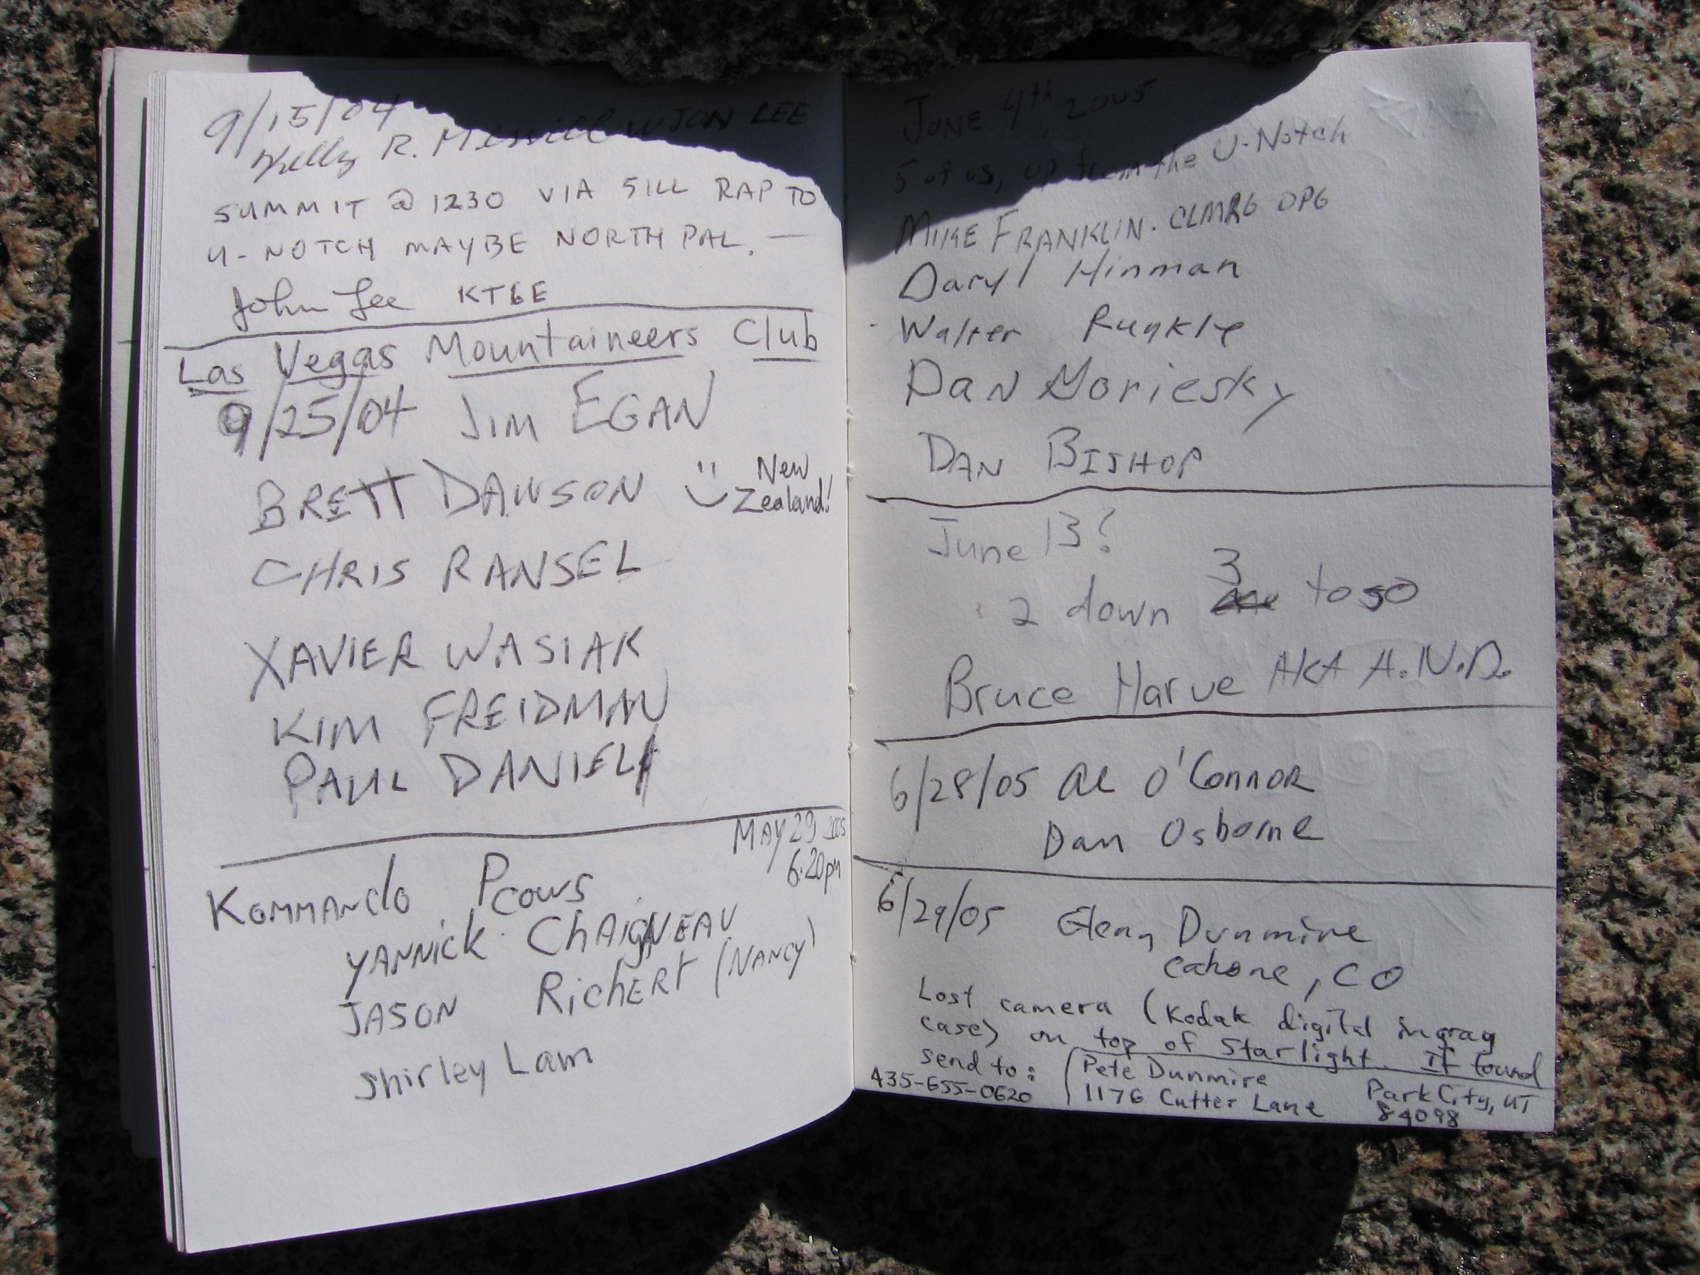 9/15/04
Kelly R. W JON LEE
SUMMIT @ 1230 VIA SILL RAP TO
U-NOTCH MAYBE NORTH PAL. —
John Lee KT6E
Las Vegas Mountaineers Club
9/25/04 JIM EGAN
BRETT DAWSON :) New Zealand!
CHRIS RANSEL
XAVIER WASIAK
KIM FREIDMAN
PAUL DANIEL
MAY 29 2005
6:20pm
KOMMANDO Pcows
YANNICK CHAIGNEAU
JASON RICHERT (NANCY)
Shirley Lam
JUNE 4th, 2005
5 of us, up from the U-Notch
MIKE FRANKLIN. CLMRG DPG
Daryl Hinman
Walter Runkle
DAN Moriesky
DAN BISHOP
June 13?
2 down 3 to go
Bruce Harve AKA A.N.D.
6/28/05 Al O'Connor
Dan Osborne
6/29/05 Glenn Dunmire
Cahone, CO
Lost camera (Kodak digital in gray
case) on top of Starlight. If found
send to: Pete Dunmire
435-655-0620 1176 Cutter Lane Park City, UT
84098